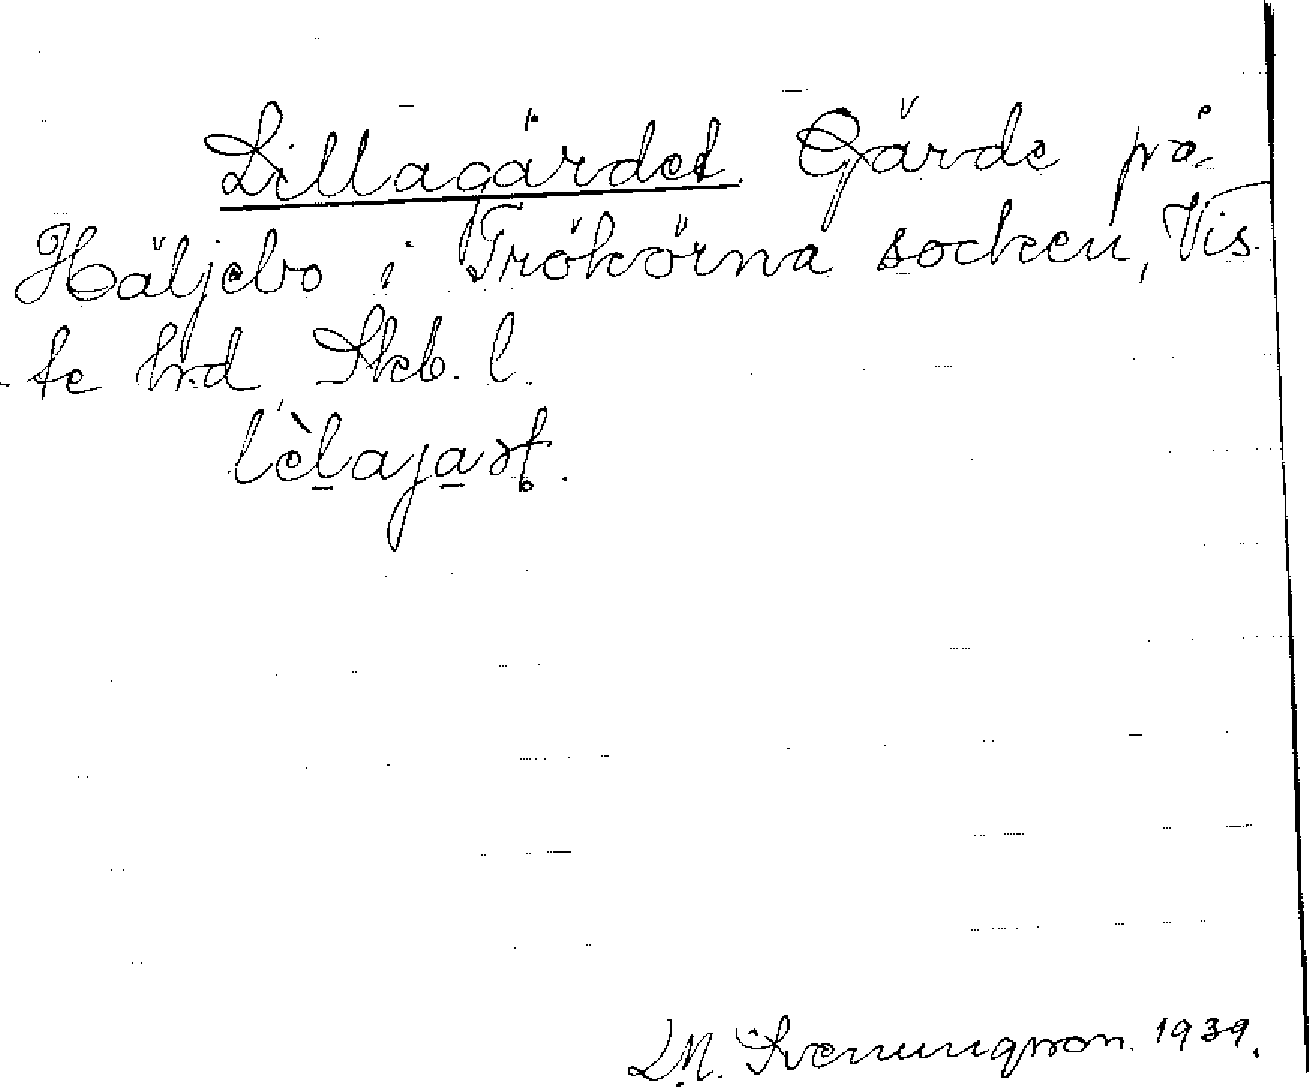 Lillagärdet. Gärde på
Häljebo i Trökörna socken, Vis-
te hrd Skb. l.
lèlajaṛt.
L.M. Svenungsson. 1939.